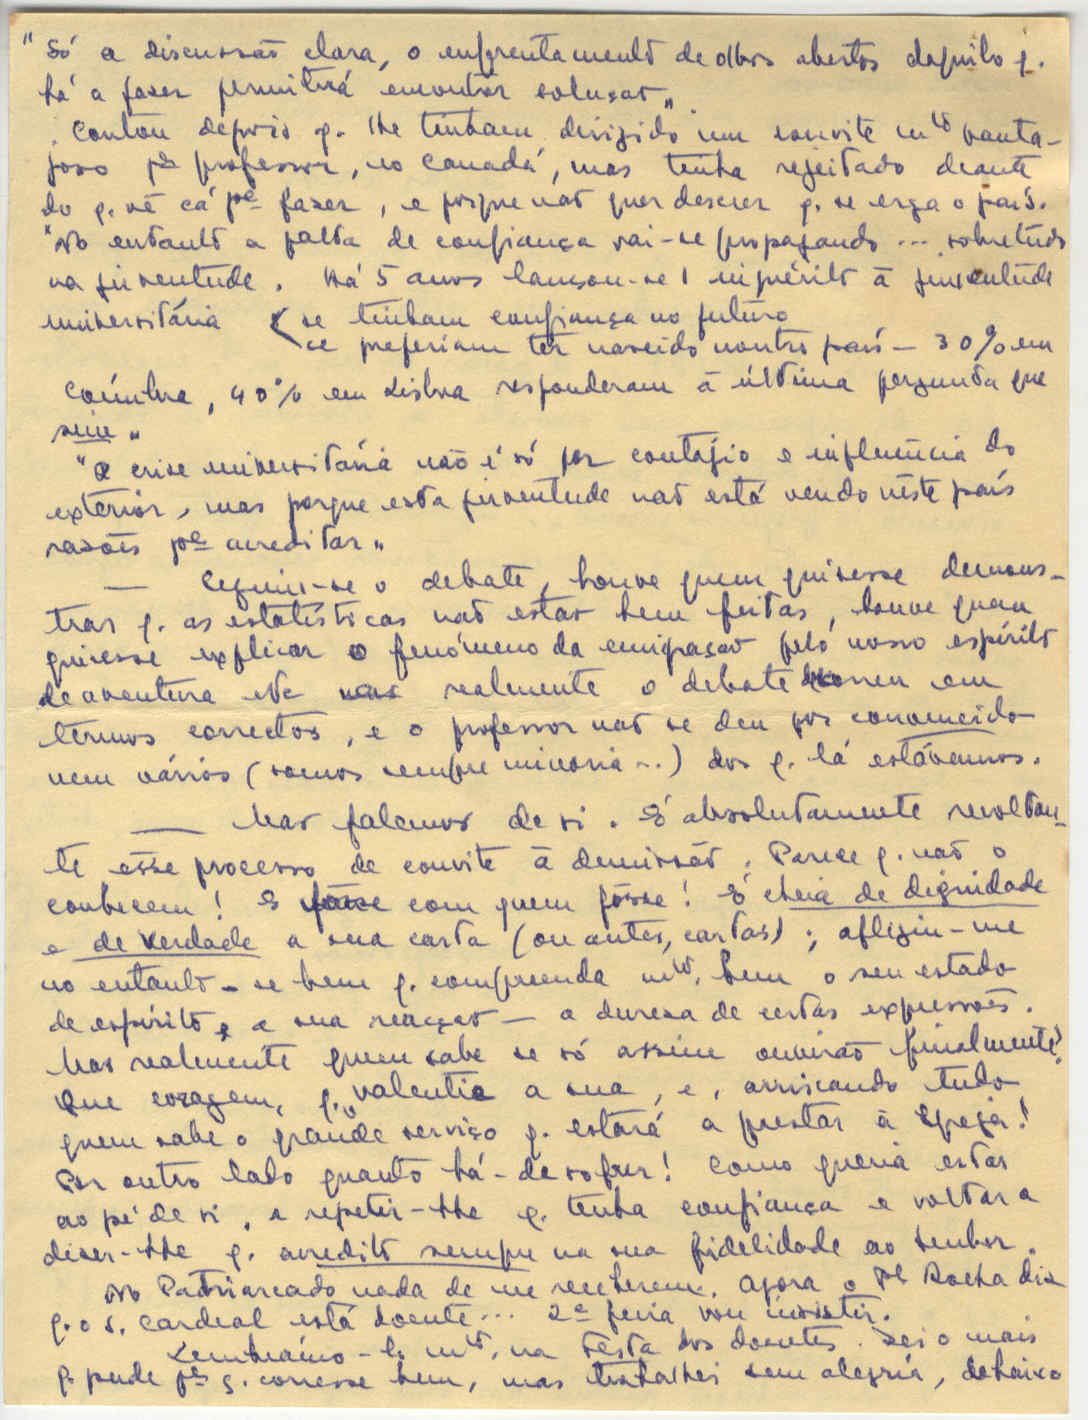 "Só a discussão clara, o enfrentamento de olhos abertos daquilo q.
há a fazer permitirá encontrar solução".
Contou depois q. lhe tinham dirigido um convite mtº vanta-
joso pª professor, no Canadá, mas tinha rejeitado deante
do q. vê cá pª fazer, e porque não quer descrer q. se erga o país.
"No entanto a falta de confiança vai-se propagando ... sobretudo
na juventude. Há 5 anos lançou-se 1 inquérito à juventude
universitária < se tinham confiança no futuro
se preferiam ter nascido noutro país — 30% em
Coimbra, 40% em Lisboa responderam à última pergunta que
sim"
"A crise universitária não é só por contágio e influência do
exterior, mas porque esta juventude não está vendo nêste país
razões pª acreditar"
— Seguiu-se o debate, houve quem quisesse demons-
trar q. as estatísticas não estão bem feitas, houve quem
quisesse explicar o fenómeno da emigração pelo nosso espírito
de aventura etc realmente o debate decorreu em
têrmos correctos, e o professor não se deu por convencido
nem vários (somos sempre minoria...) dos q. lá estávamos.
— Mas falemos de si. É absolutamente revoltan-
te êsse processo de convite à demissão. Parece q. não o
conhecem! E com quem fôsse! É cheia de dignidade
e de verdade a sua carta (ou antes, cartas); afligiu-me
no entanto - se bem q. compreenda mtº. bem o seu estado
de espírito e a sua reacção — a dureza de certas expressões.
Mas realmente quem sabe se só assim ouvirão finalmente?
Que coragem, q. valentia a sua, e, arriscando tudo
quem sabe o grande serviço q. estará a prestar à Igreja!
Por outro lado quanto há-de sofrer! Como queria estar
ao pé de si, e repetir-lhe q. tenha confiança e voltar a
dizer-lhe q. acredito sempre na sua fidelidade ao Senhor.
No Patriarcado nada de me receberem. Agora o Pe Rocha diz
q. o S. Cardeal está doente... 2ª feira vou insistir.
Lembrámo-lo mtº. na Festa dos doentes. Fiz o mais
q. pude pª q. corresse bem, mas trabalhei sem alegria, debaixo